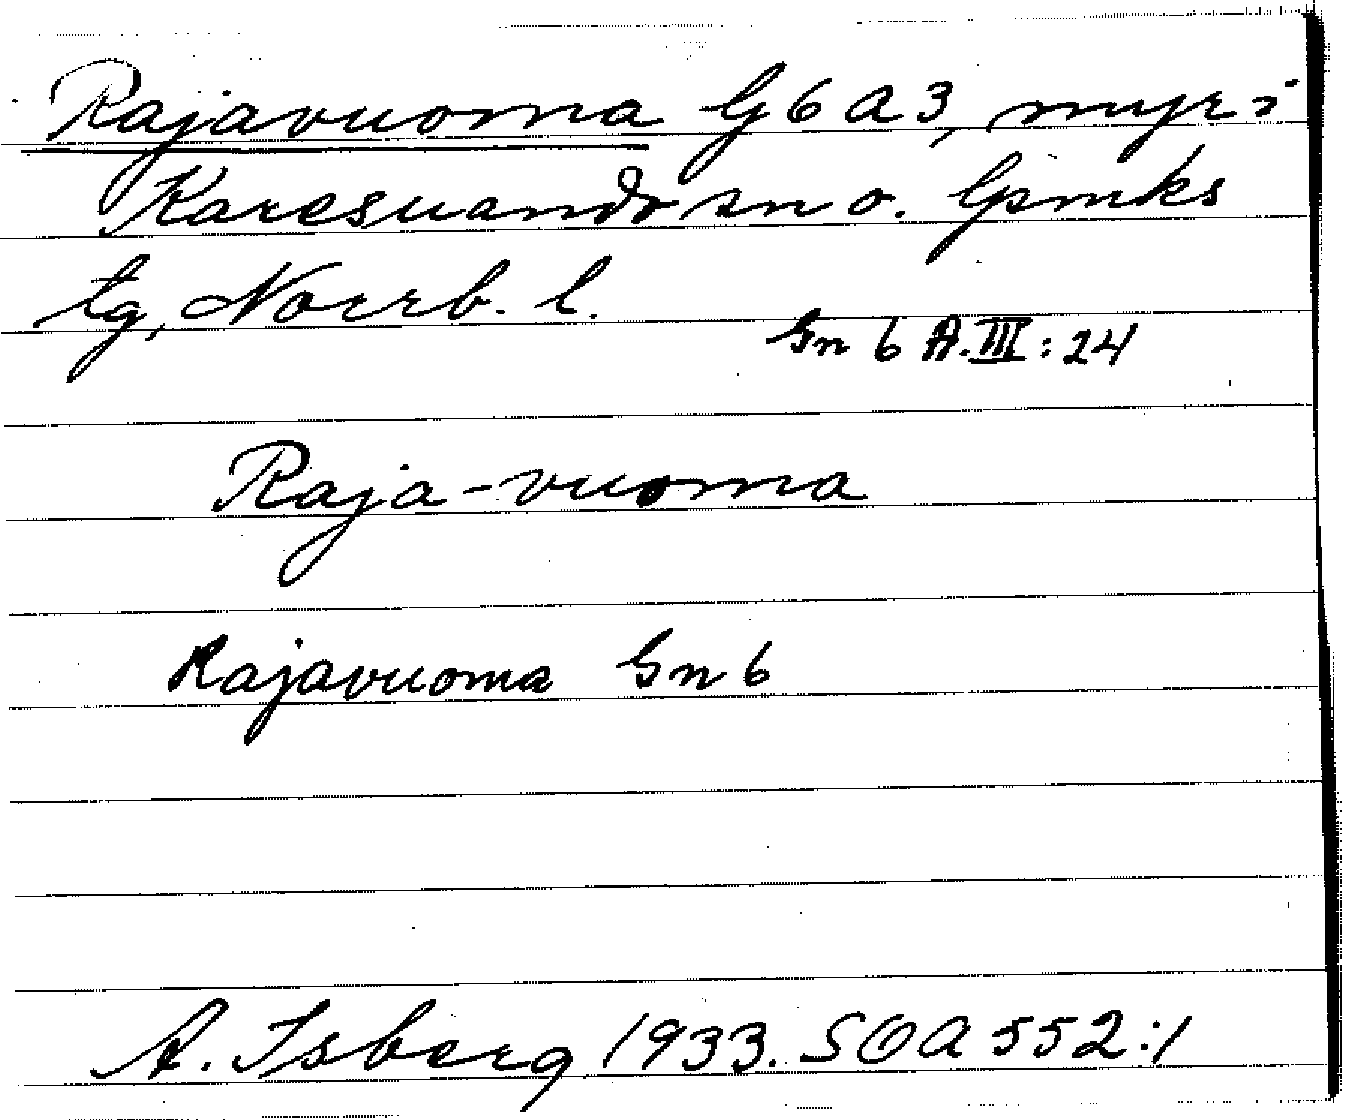 Rajavuoma G 6 A 3, myr i
Karesuando sn o. lpmks
tg, Norrb. l.
Gn 6 A.III:24
Raja-vuoma
Rajavuoma Gn 6
A. Isberg 1933. SOA 552:1